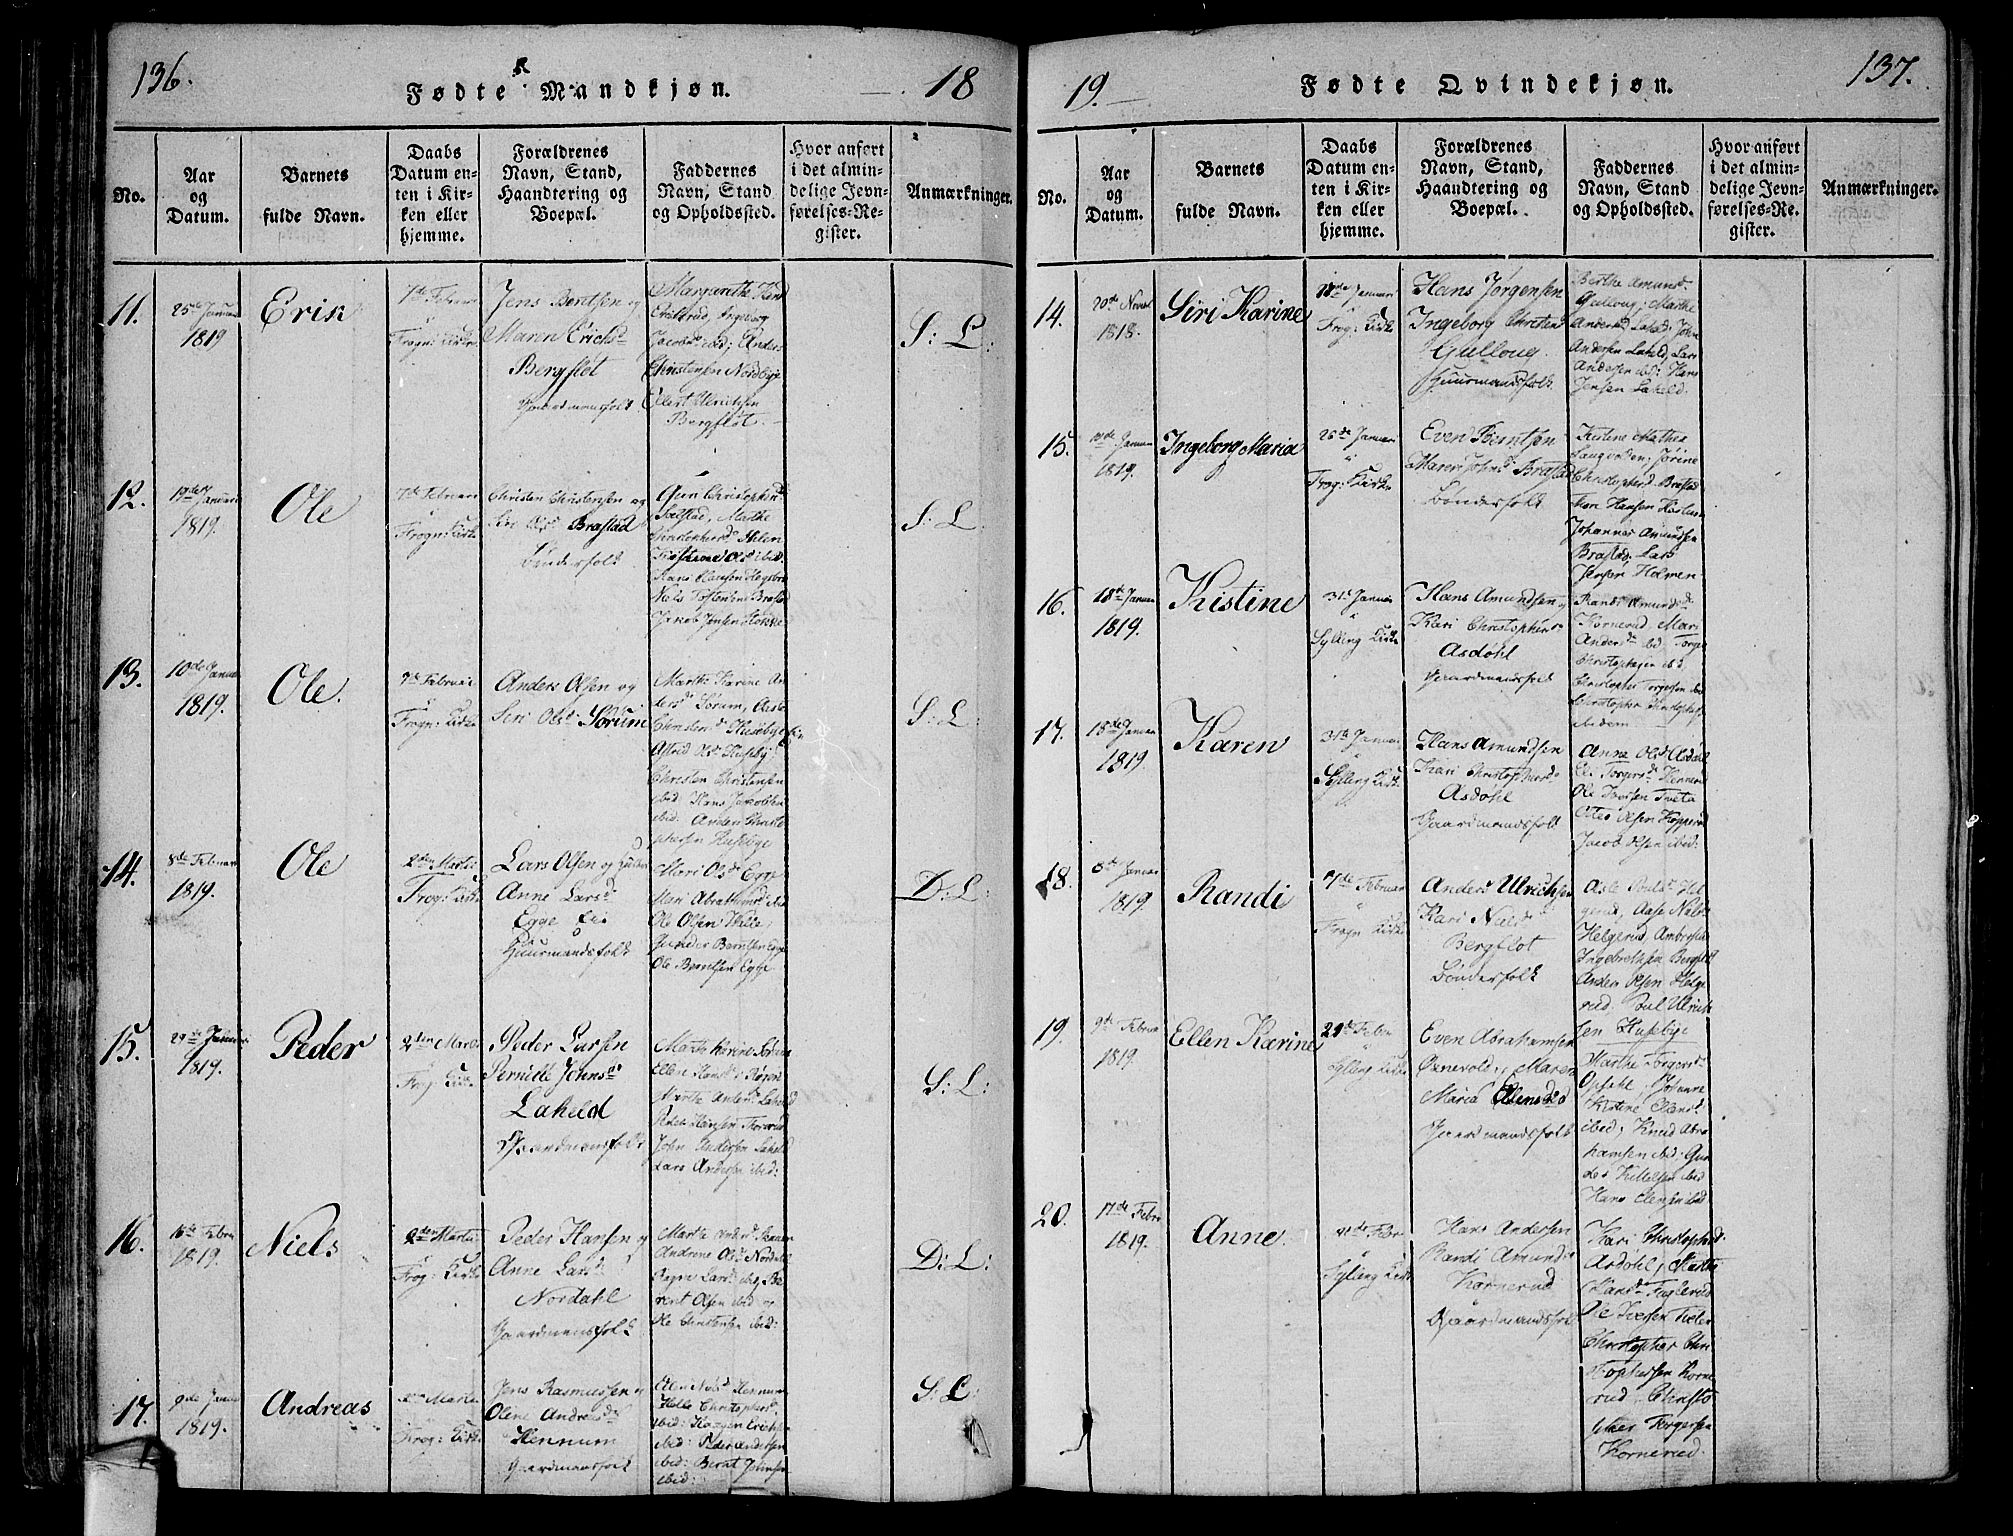 136.
Fødte Mandkjøn.
18
No.
Aar
og
Datum.
Barnets
fulde Navn.
Daabs
Datum en-
ten i Kir-
ken eller
hjemme.
Forældrenes
Navn, Stand,
Haandtering og
Boepæl.
Faddernes
Navn, Stand
og Opholdssted.
Hvor anført
i det almin-
delige Jevn-
førelses-Re-
gister.
Anmærkninger.
11.
25de Januar
1819
Erik
7de Februar
Frogn: Kirke
Jens Berntsen og
Maren Erichs
Bergflot
Gaardmansfolk
Margarethe
Ingeborg
Jacobsd ibid; Anders
Christensen Nordbye
Ellert Ulrichsen
Bergflot.
S: L:
12.
Januar
1819.
Ole
7de Februar
Frogn: Kirke
Christen Christensen og
Siri Olsd Brastad
Bønderfolk
Gun Christophersd
Solstad, Mathe
Kistine Olsd ibid
Hans Hansen
Niels Tostensen Brastad
Jakob Jensen Stokke
S: L:
13.
10de Januar
1819.
Ole.
7de Februar
Frogn: Kirke
Anders Olsen og
Siri Olsd: Sørum
Marthe Karine An
dersd Sorum,
Astrid Olsd Huseby;
Christen Christensen
ibid; Hans Jacobsen
ibid: Anders Christo
phersen Husebye
S: L:
14.
8de Februar
1819.
Ole
2den Martii
Frog: Kirke
Lars Olsen og
Anne Larsd
Egge Eie
Huusmandsfolk
Mari Olsd Egge
Mari Abrahamsd ibid
Ole Olsen Hvile,
Gunder Berntsen Egge
Ole Berntsen Egge
D: L:
15.
29de Januar
1819.
Peder
2den Marti
Frog: Kirk.
Peder Larsen
Pernille Johnsd
Laheld
Gaardmansfolk
Marthe Karine Sørum
Ellen Hansd Røren
Marthe Andersd Laheld
Peder Hansen
John Andersen Laheld
Lars Andersen ibid:
S: L:
16.
Febru
1819.
Niels
2den Martii
Frog: Kirke
Peder Hansen og
Anne Larsd
Nordahl
Gaardmansfolk
Marthe
Andrene Olsd Nordal
Ragne Larsd ibid, Be
rent Olsen ibid og
Ole Christensen ibid:
D: L:
17.
9de Janu
1819.
Andreas
Martii
Frog: Kirke
Jens Rasmussen og
Olene Andreasd
Hennum
Gaardmansfolk
Ellen Nielsd Hennum
Helle Christophersd
ibid: Haagen Erichs
ibid: Peder Andersen
ibid: Bernt Johnsen
ibid:
S: L:
19.
Fødte Qvindekjøn.
137.
No.
Aar
og
Datum.
Barnets
fulde Navn.
Daabs
Datum en-
ten i Kir-
ken eller
hjemme.
Forældrenes
Navn, Stand,
Haandtering og
Boepæl.
Faddernes
Navn, Stand
og Opholdssted.
Hvor anført
i det almin-
delige Jevn-
førelses-Re-
gister.
Anmærkninger.
14.
20de Novbr
1818.
Siri Karine
Januar
Frog: Kirke
Hans Jørgensen
Ingeborg Christens
Gulloug.
Huusmandsfolk
Berthe Amunds
Gulloug; Marthe
Andersd Laheld, John
Andersen Laheld, Lars
Andersen ibid: Hans
Jensen Laheld.
15.
Januar
1819.
Ingeborg Maria
25de Januar
Frog: Kirke
Even Berntsen
Maren Johnsd: Brastad
Bønderfolk
Kistine Mathea
Langvolden; Jørine
Christophersd. Brastad
Johannes Amundsen
Brastad; Lars
Jensen Holmen
16.
18de Januar
1819.
Kistine
31te Januar
Sylling Kirke
Hans Amundsen og
Kari Christophersd
Asdøhl
Gaardmansfolk
Randi Amundsd
Kornerud, Mari
Andersd ibid. Torger
Christophersen ibid
Christopher Torgersen ibid
Christopher Christophers
ibidem
17.
18de Januar
1819.
Karen
31te Januar
Sylling Kirke
Hans Amundsen
Kari Christophersd
Asdøhl
Gaardmandsfolk
Anna Olsd Asdøhl
Eli Torgersd Kornerud
Ole Iversen Tveta
Otter Olsen Kopperud
Jacob Olsen ibid:
18.
8de Januar
1819.
Randi
7de Februar
Frogn Kirke
Anders Ulrichsen
Kari Nielsd
Bergflot
Bønderfolk
Aisle Povlsd Hel
gerud, Aase Nielsd
Helgerud, Ambrosius
Ingebrethsen Bergflot
Anders Olsen Helge
rud, Povl Ulrich
sen Husebye
19.
9de Februar
1819.
Ellen Karine
21de Febru
Sylling Kirke
Even Abrahamsen
Øxnevold, Maren
Maria Olensdd
Gaardmandsfolk
Marthe Torgersd
Opsahl, Johanne
Kistine Elensd
ibid; Knud Abra
hamsen ibid; Gun
der Kittelsen ibid
Hans Elensen ibid
20.
17de Febru
1819.
Anne
21de Febr
Sylling Kirke
Hans Andersen
Randi Amundsd
Kornerud
Gaardmandsfolk
Kari Christophersd:
Asdøhl, Marthe
Larsd Fuglerud
Ole Iversen Tveter
Christopher Chri
stophersen Korne
rud, Christo
pher Torgersen
Kornerud.